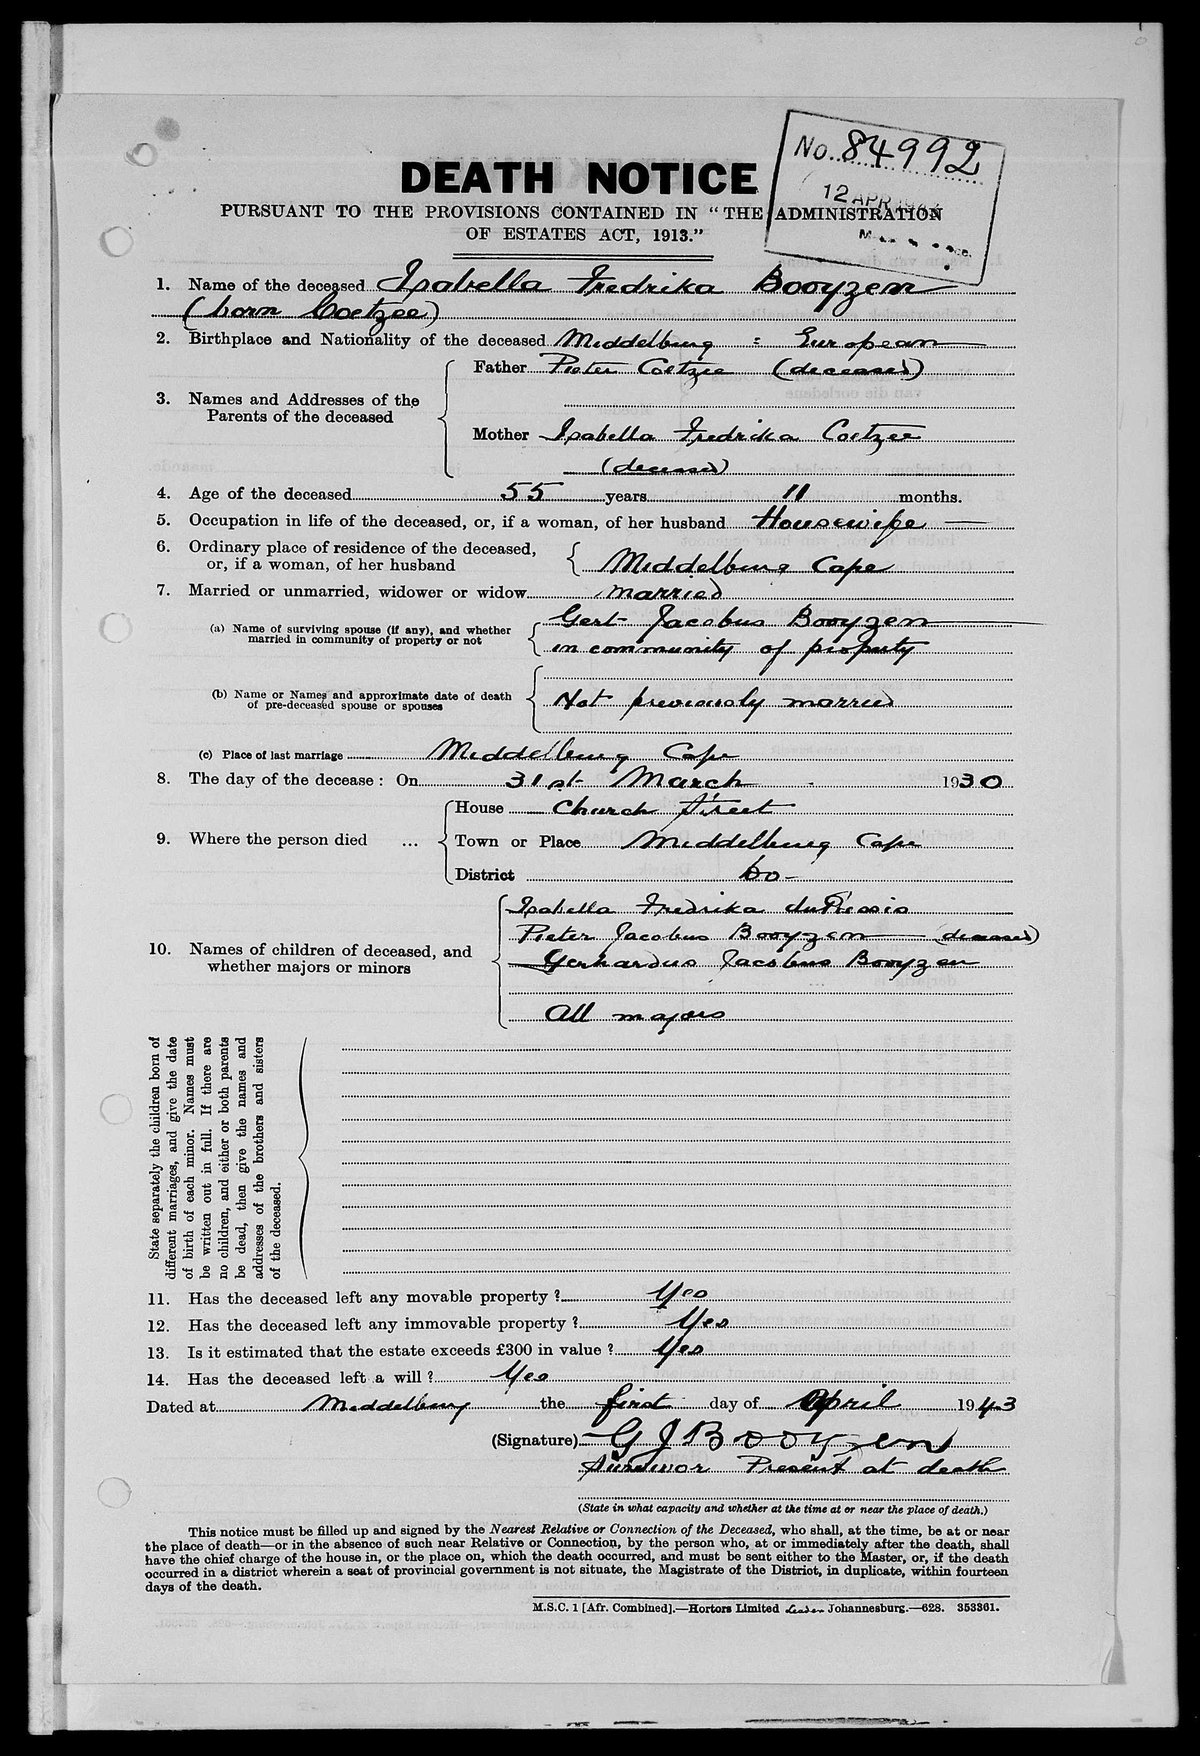 No. 84992
12 APR
DEATH NOTICE
PURSUANT TO THE PROVISIONS CONTAINED IN "THE ADMINISTRATION
OF ESTATES ACT, 1913."
1. Name of the deceased Isabella Fredrika Booyzen
(born Coetzee)
2. Birthplace and Nationality of the deceased Middelburg : European
3. Names and Addresses of the
Parents of the deceased
Father Pieter Coetzee (deceased)
Mother Isabella Fredrika Coetzee
(deceased)
4. Age of the deceased 55 years 11 months.
5. Occupation in life of the deceased, or, if a woman, of her husband Housewife
6. Ordinary place of residence of the deceased,
or, if a woman, of her husband
Middelburg Cape
7. Married or unmarried, widower or widow married
(a) Name of surviving spouse (if any), and whether
married in community of property or not
Gert Jacobus Booyzen
in community of property
(b) Name or Names and approximate date of death
of pre-deceased spouse or spouses
Not previously married
(c) Place of last marriage Middelburg Cape
8. The day of the decease : On 31st March 1930
9. Where the person died ...
House Church Street
Town or Place Middelburg Cape
District Do -
10. Names of children of deceased, and
whether majors or minors
Isabella Fredrika du Plessis
Pieter Jacobus Booyzen (deceased)
Gerhardus Jacobus Booyzen
All majors
State separately the children born of
different marriages, and give the date
of birth of each minor. Names must
be written out in full. If there are
no children, and either or both parents
be dead, then give the names and
addresses of the brothers and sisters
of the deceased.
11. Has the deceased left any movable property ? Yes
12. Has the deceased left any immovable property ? Yes
13. Is it estimated that the estate exceeds £300 in value ? Yes
14. Has the deceased left a will ? Yes
Dated at Middelburg the first day of April 1943
(Signature) G J Booyzen
Survivor Present at death
(State in what capacity and whether at the time at or near the place of death.)
This notice must be filled up and signed by the Nearest Relative or Connection of the Deceased, who shall, at the time, be at or near
the place of death—or in the absence of such near Relative or Connection, by the person who, at or immediately after the death, shall
have the chief charge of the house in, or the place on, which the death occurred, and must be sent either to the Master, or, if the death
occurred in a district wherein a seat of provincial government is not situate, the Magistrate of the District, in duplicate, within fourteen
days of the death.
M.S.C. 1 [Afr. Combined].—Hortors Limited Johannesburg.—628. 353361.